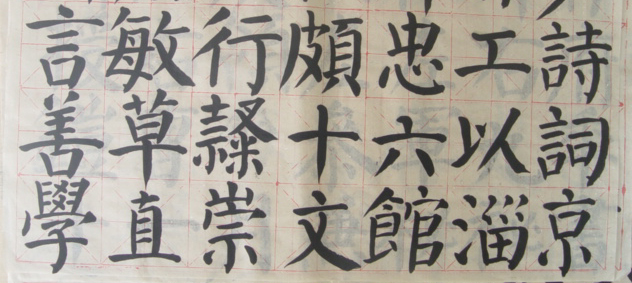 詩詞京
工以淄
忠六館
頗十文
行隸崇
敏草直
言善學